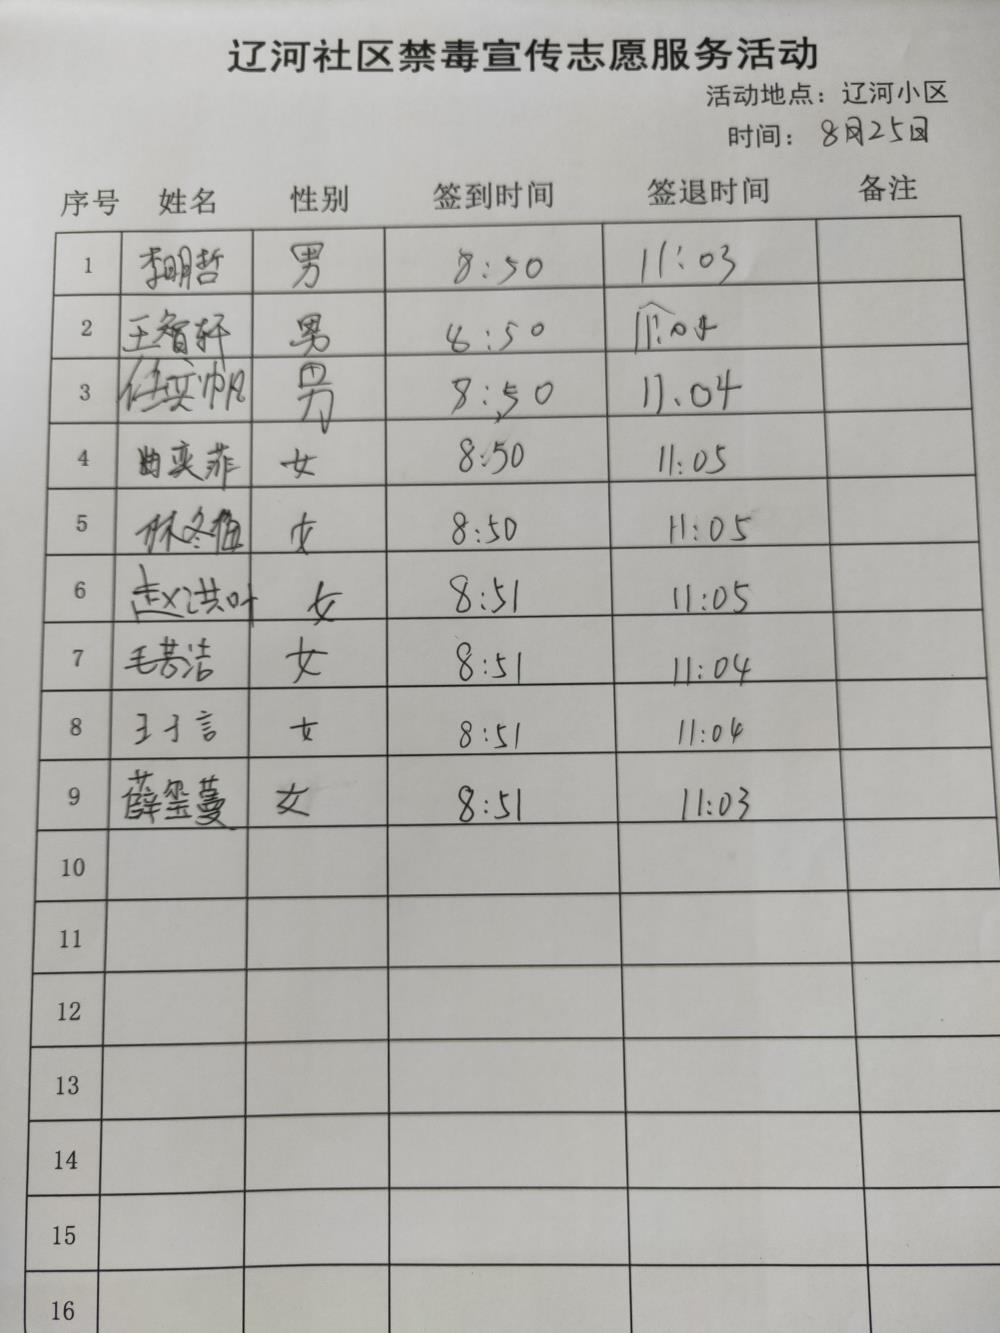 辽河社区禁毒宣传志愿服务活动
活动地点：辽河小区
时间：8月25日
序号 姓名 性别 签到时间 签退时间 备注
1 李明哲 男 8:50 11:03
2 王智轩 男 8:50 11:04
3 任奕帆 男 8:50 11:04
4 曲奕菲 女 8:50 11:05
5 林冬梅 女 8:50 11:05
6 赵洪叶 女 8:51 11:05
7 毛若洁 女 8:51 11:04
8 王子言 女 8:51 11:04
9 薛玺蔓 女 8:51 11:03
10
11
12
13
14
15
16